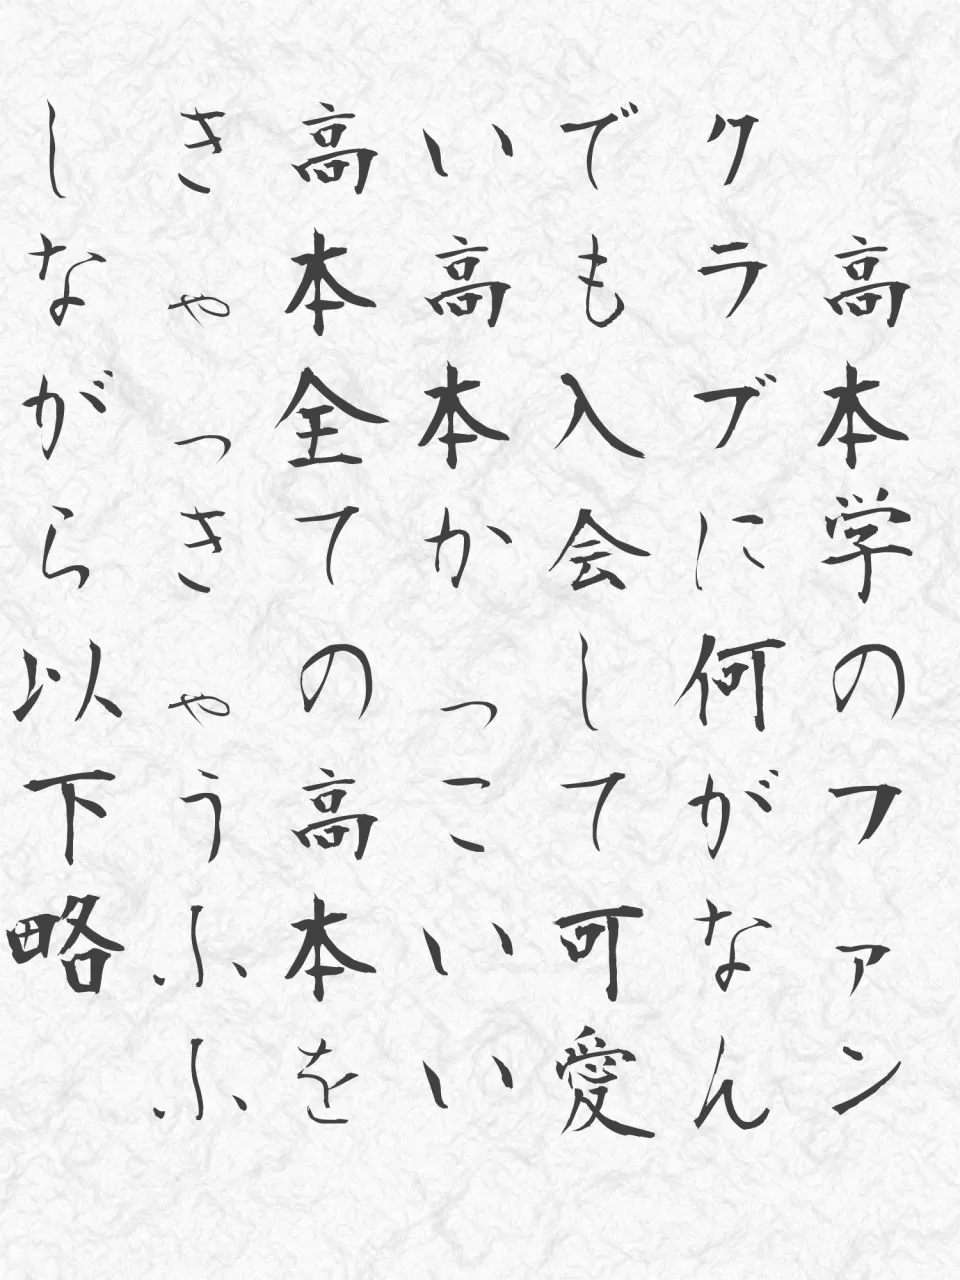 高本学のファン
クラブに何がなん
でも入会して可愛
い高本かっこいい
高本全ての高本を
きゃっきゃうふふ
しながら以下略